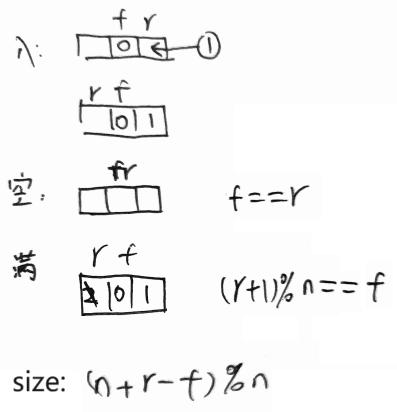 入:
f r
0 ①
r f
0 1
空:
fr
f==r
满
r f
0 1
(r+1)%n==f
size: (n+r-f)%n